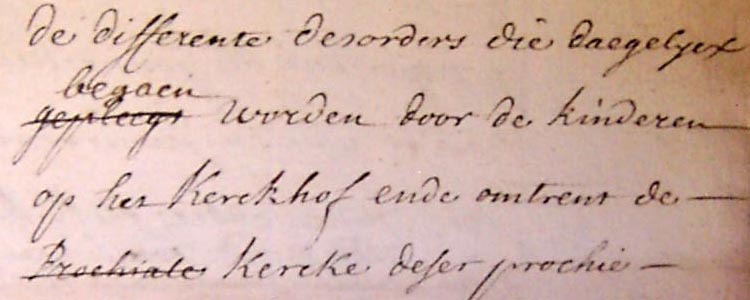 de differente desorders die daegelyex
begaen
gepleegt worden door de kinderen
op het Kerckhof ende omtrent de —
Prochiale Kercke deser prochie —